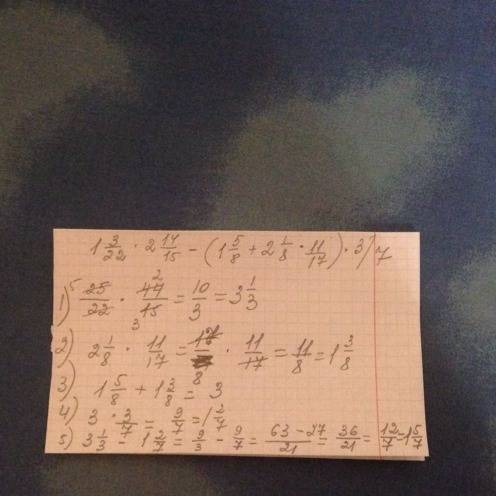 1 3/22 · 2 14/15 - (1 5/8 + 2 1/8 · 11/17) · 3/7
1) 25/22 · 44/15 = 10/3 = 3 1/3
2) 2 1/8 · 11/17 = 17/8 · 11/17 = 11/8 = 1 3/8
3) 1 5/8 + 1 3/8 = 3
4) 3 · 3/7 = 9/7 = 1 2/7
5) 3 1/3 - 1 2/7 = 9/3 - 9/7 = 63-27/21 = 36/21 = 12/7 = 1 5/7